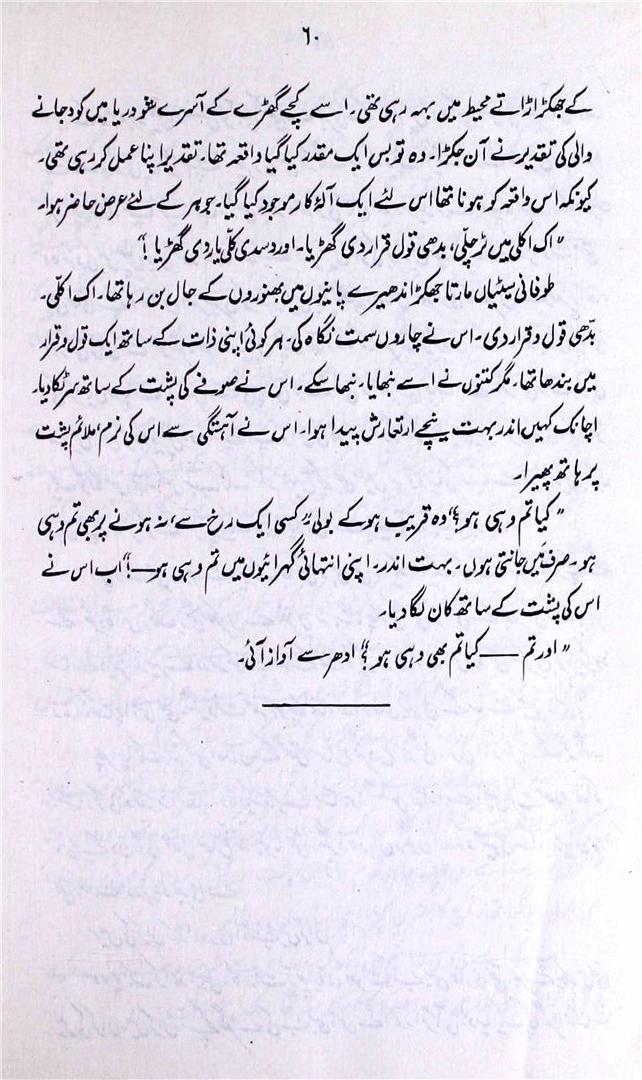 ۶۰
کے جھکڑ اڑاتے محیط میں بہہ رہی تھی۔ اسے کچے گھڑے کے آسرے بنفود دریا میں کود جانے
والی کی تقدیر نے آن جکڑا۔ وہ تو بس ایک مقدر کیا گیا واقعہ تھا۔ تقدیر اپنا عمل کر رہی تھی۔
کیونکہ اس واقعہ کو ہونا تھا اس لئے ایک آلۂ کار موجود کیا گیا۔ جوہر کے لئے عرض حاضر ہوا۔
"اک اکلی میں ٹر چلّی، بدھی قول قرار دی گھڑیا۔ اور دسدی کلّی یار دی گھڑیا!"
طوفانی سیٹیاں مارتا جھکڑ اندھیرے پانیوں میں بھنوروں کے جال بن رہا تھا۔ اک اکلّی۔
بدّھی قول و قرار دی۔ اس نے چاروں سمت نگاہ کی۔ ہر کوئی اپنی ذات کے ساتھ ایک قول و قرار
میں بندھا تھا۔ مگر کتنوں نے اسے نبھایا۔ نبھا سکے۔ اس نے صوفے کی پشت کے ساتھ سر ٹکا دیا۔
اچانک کہیں اندر بہت نیچے ارتعارش پیدا ہوا۔ اس نے آہستگی سے اس کی نرم، ملائم پشت
پر ہاتھ پھیرا۔
"کیا تم وہی ہو؟" وہ قریب ہو کے بولی "کسی ایک رخ سے، نہ ہونے پر بھی تم وہی
ہو۔ صرف مَیں جانتی ہوں۔ بہت اندر۔ اپنی انتہائی گہرائیوں میں تم وہی ہو——!" اب اس نے
اس کی پشت کے ساتھ کان لگا دیا۔
"اور تم —— کیا تم بھی وہی ہو؟" ادھر سے آواز آئی۔